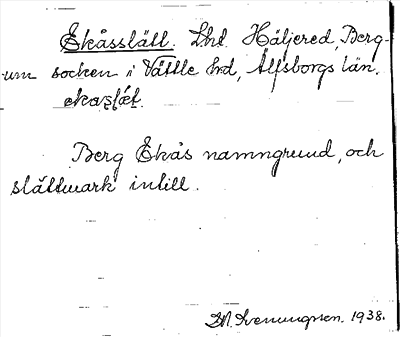 Ekåsslätt. Lht. Häljered, Berg-
um socken i Vättle hd, Älfsborgs län.
ekaslǽt.
Berg Ekås namngrund, och
slättmark intill.
1938.